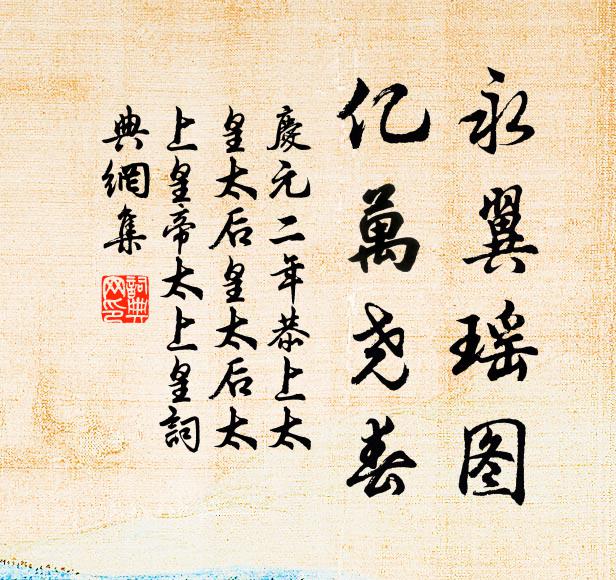 永翼瑶图
亿萬尧春
慶元二年恭上太
皇太后皇太后太
上皇帝太上皇詞
典網集
詞典
网印